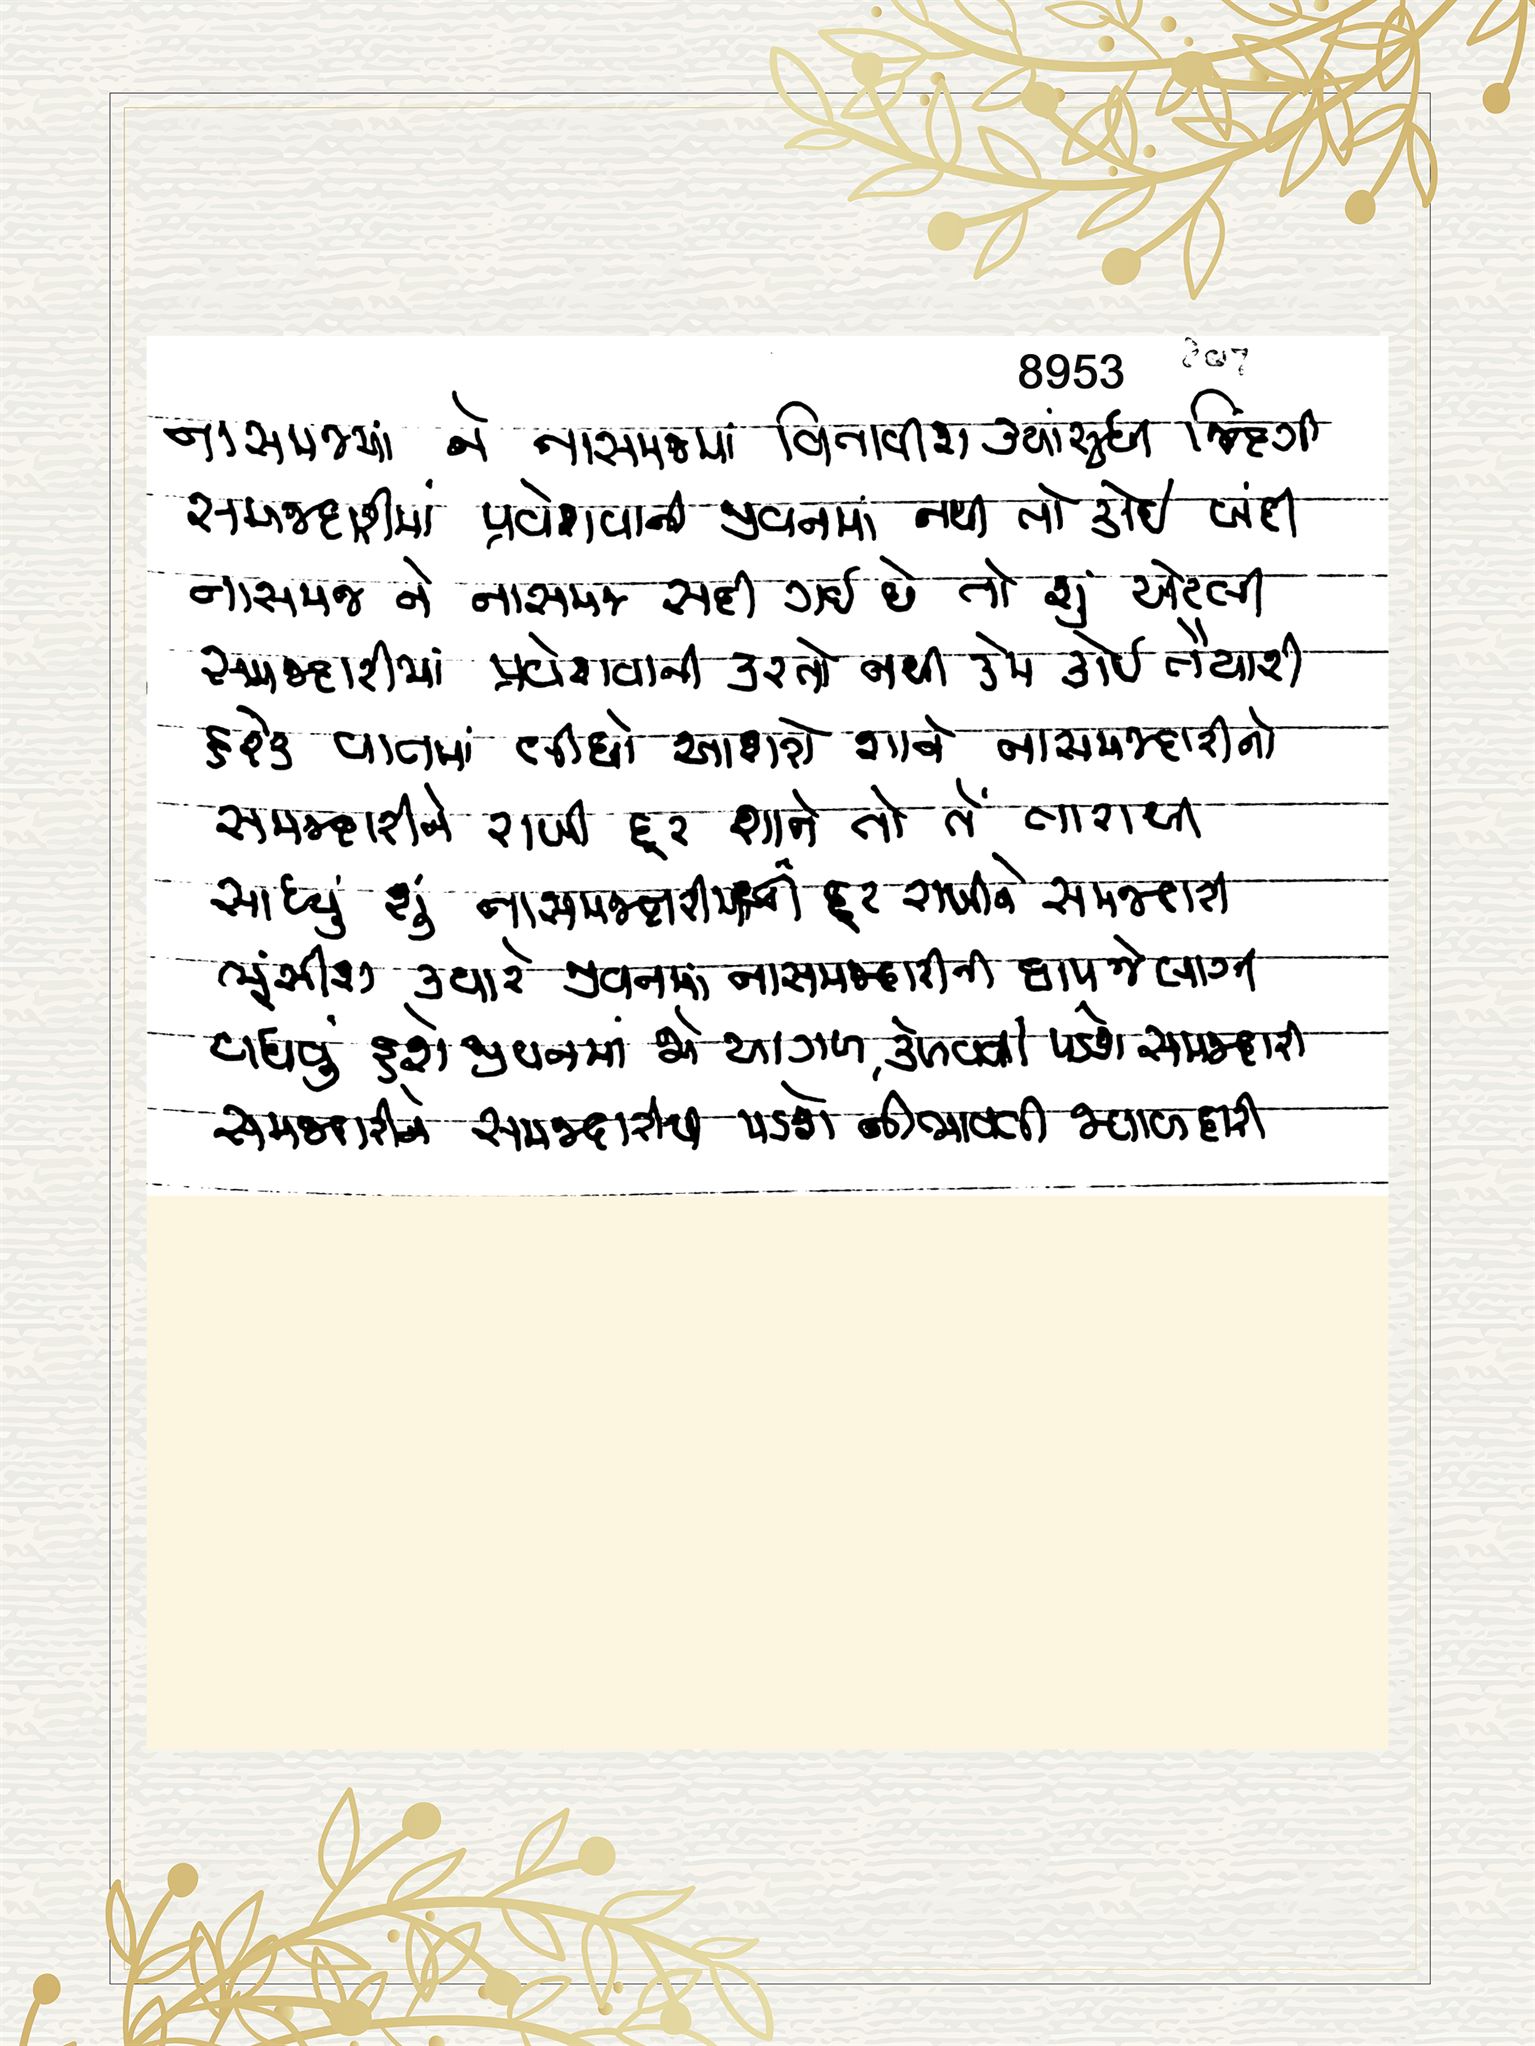 8953
નાસમજમાં ને નાસમજમાં વિતાવીશ ક્યાં સુધી જિંદગી
સમજદારીમાં પ્રવેશવાની જીવનમાં નથી તો કોઈ બંદી
નાસમજ ને નાસમજ સદી ગઈ છે તો શું એટલી
સમજદારીમાં પ્રવેશવાની કરતો નથી કેમ કોઈ તૈયારી
હરેક વાતમાં લીધો આશરો શાને નાસમજદારીનો
સમજદારીને રાખી દૂર શાને તો તેં તારાથી
સાધ્યું શું નાસમજદારીમાંથી દૂર રાખીને સમજદારી
ભૂંસીશ ક્યારે જીવનમાં નાસમજદારીની છાપ જે લાગી
વધવું હશે જીવનમાં જો આગળ, કેળવવી પડશે સમજદારી
સમજદારીને સમજદારીથી પડશે નીભાવવી જવાબદારી